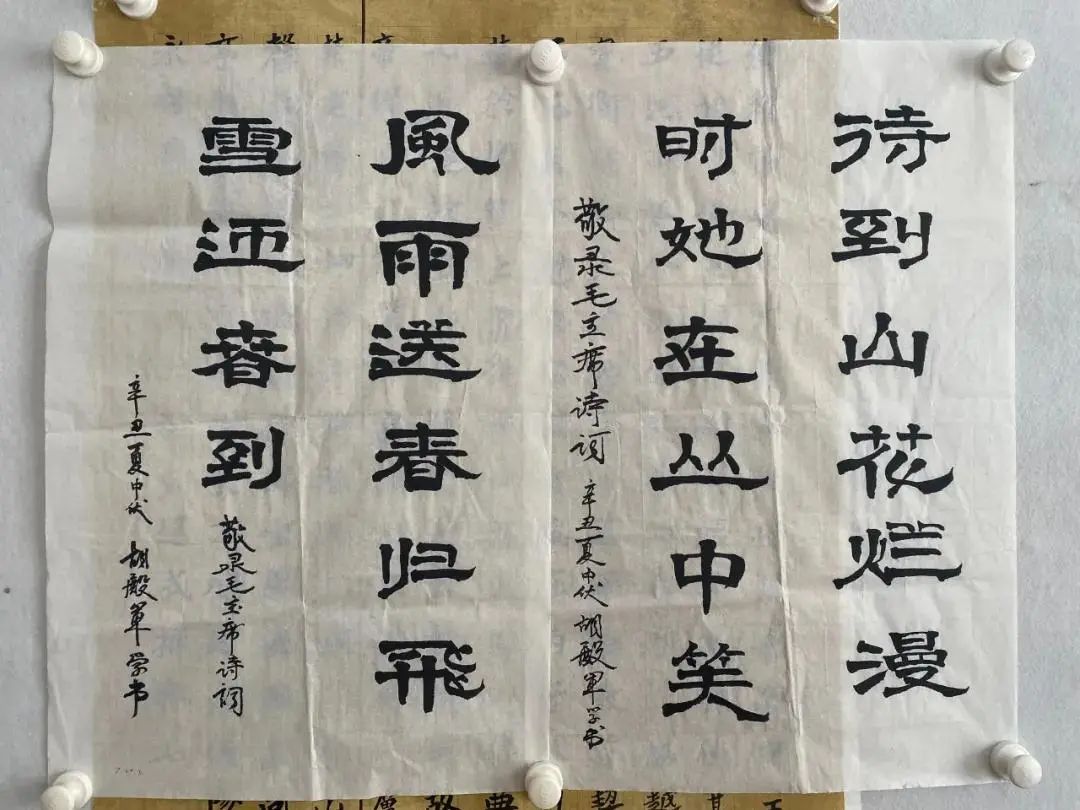 待到山花烂漫
时她在丛中笑
敬录毛主席诗词 辛丑夏中伏 胡殿军学书
風雨送春归飛
雪迎春到
敬录毛主席诗词
辛丑夏中伏 胡殿军学书